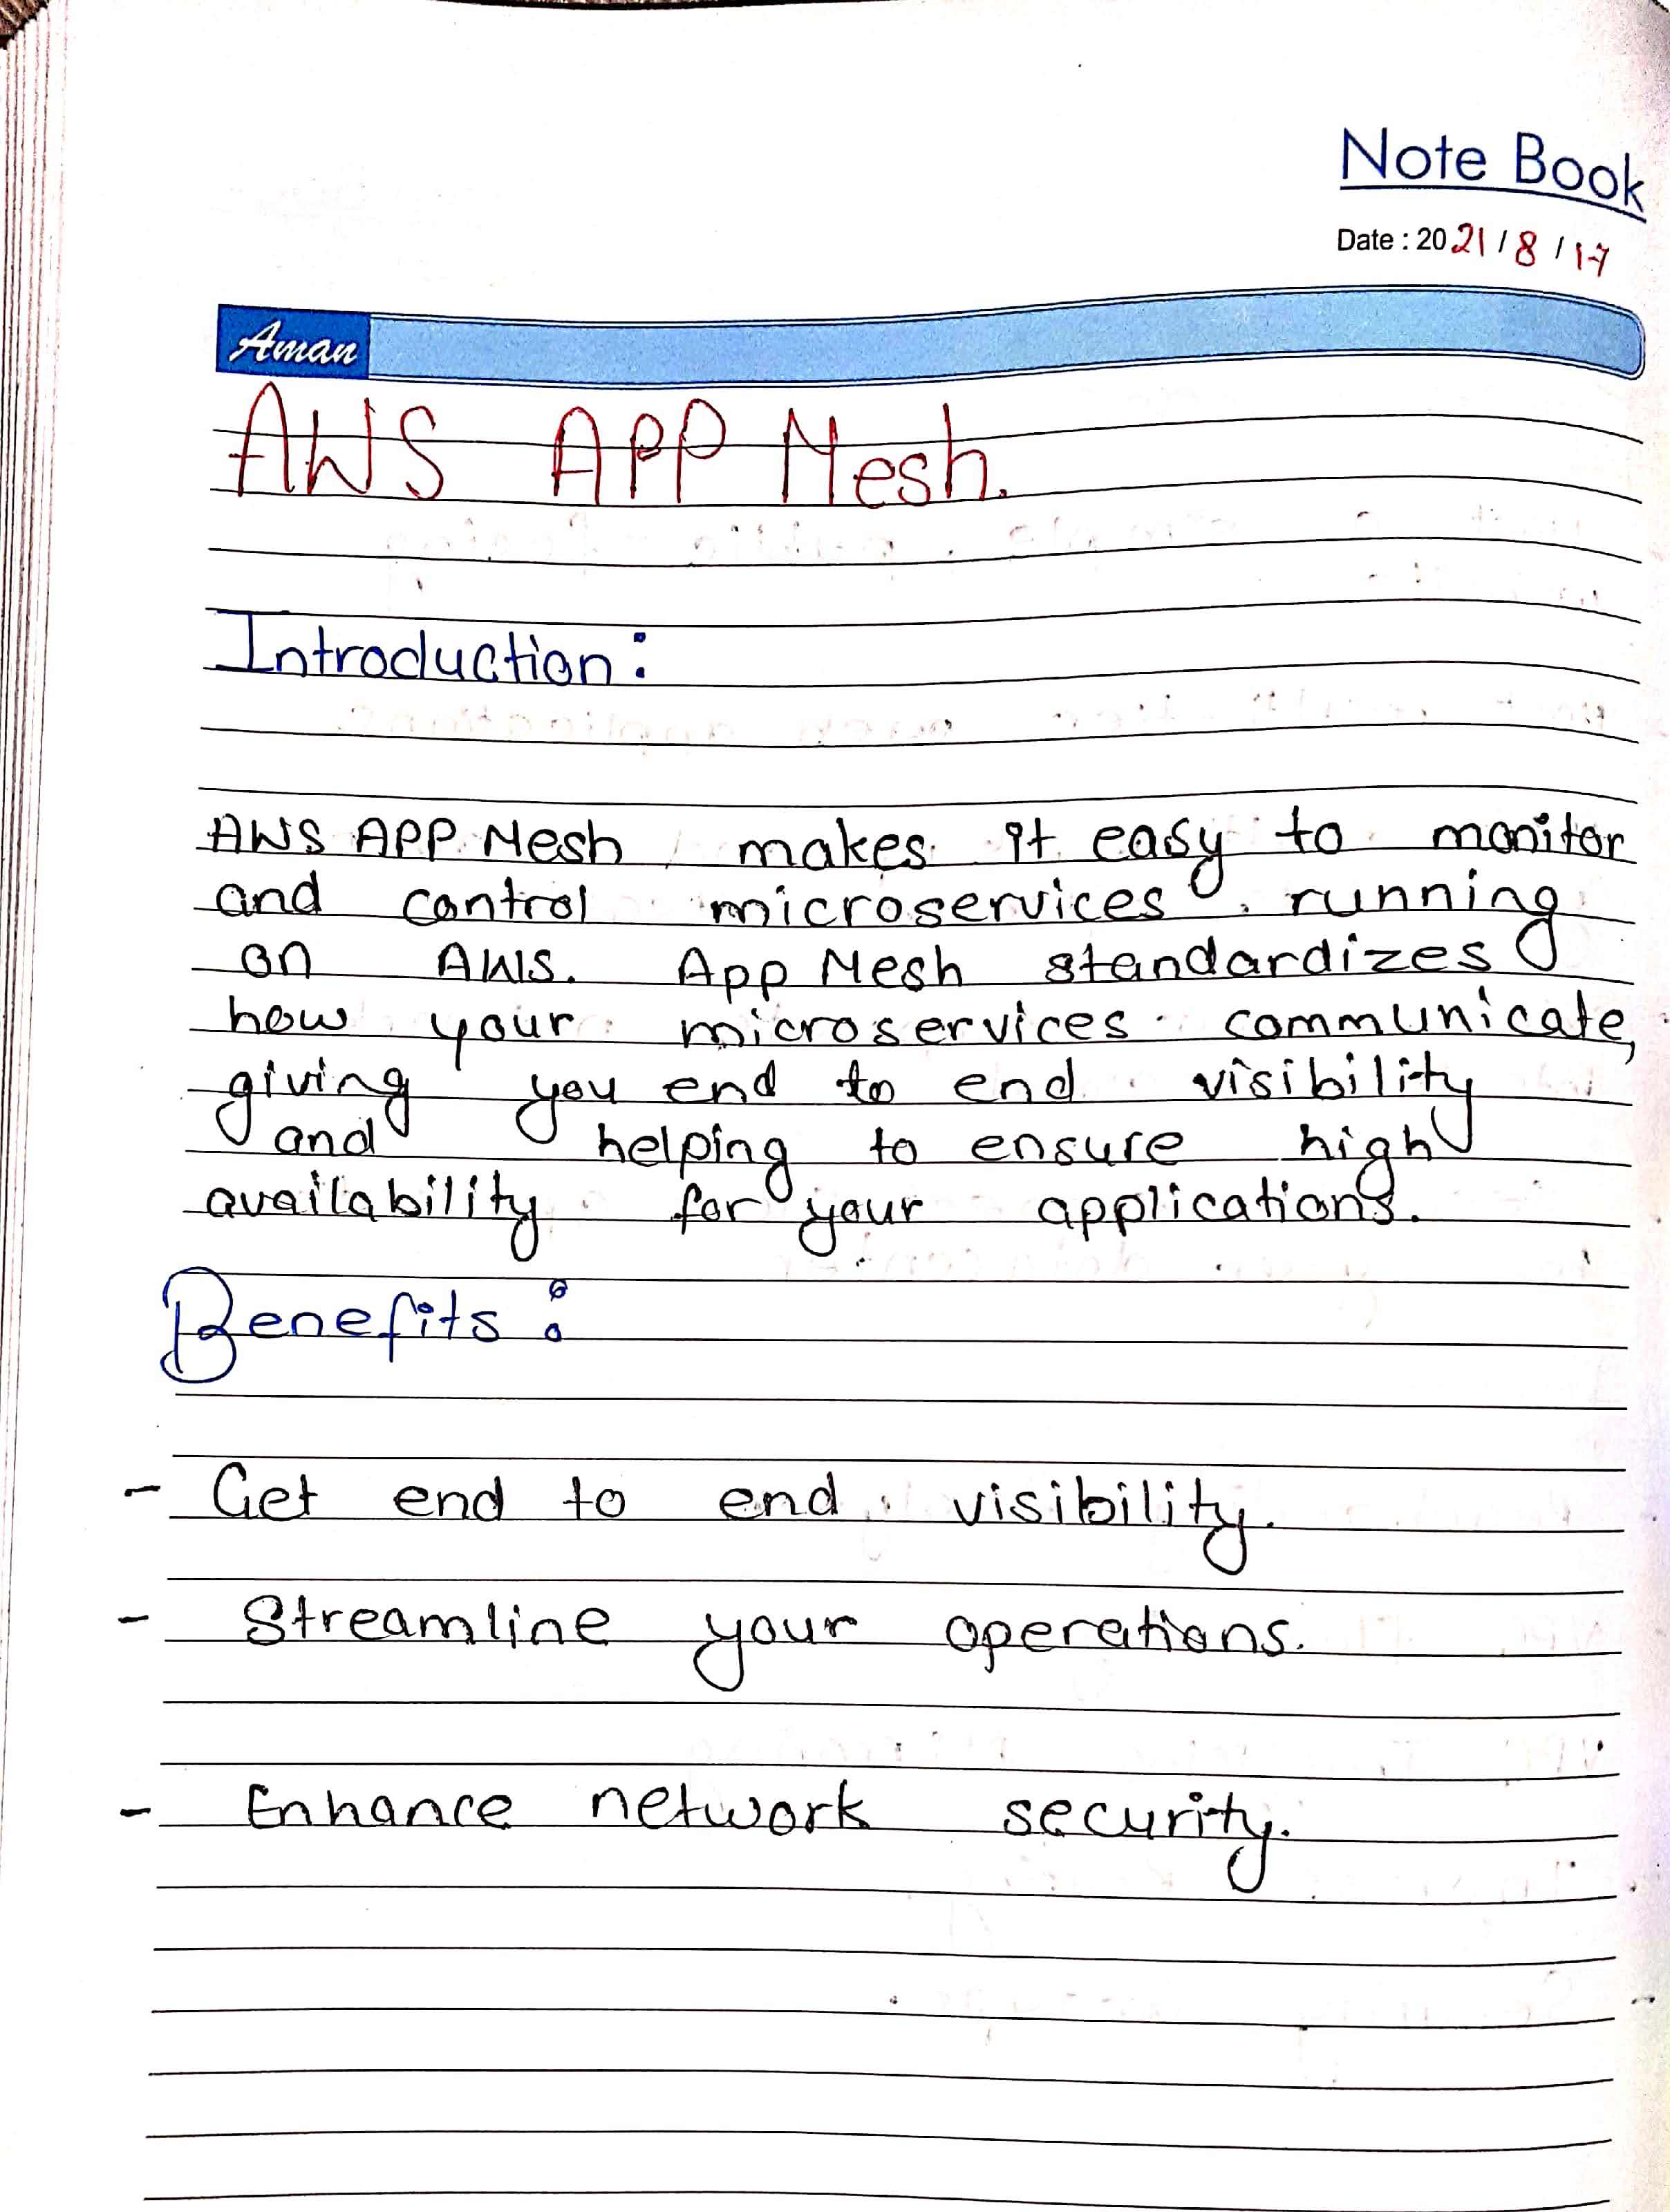 Note Book
Date : 2021 / 8 / 17
Aman
AWS APP Mesh.
Introduction:
AWS APP Mesh makes it easy to monitor
and control microservices running
on AWS. App Mesh standardizes
how your microservices communicate,
giving you end to end visibility
and helping to ensure high
availability for your applications.
Benefits:
- Get end to end visibility.
- Streamline your operations.
- Enhance network security.